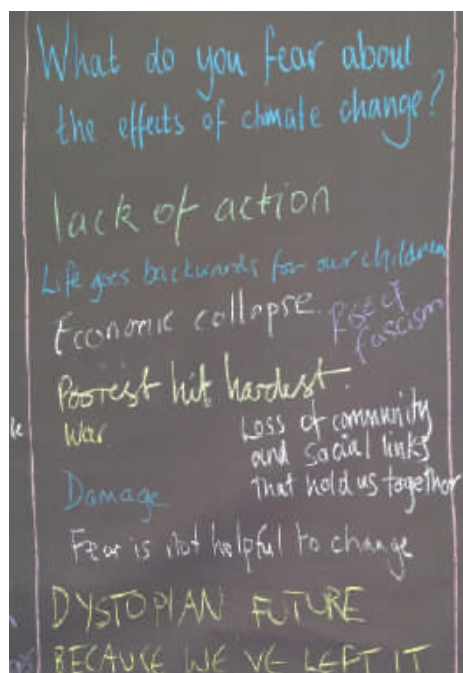 What do you fear about
the effects of climate change?
lack of action
Life goes backwards for our children
Economic collapse.
Rise of
fascism
Poorest hit hardest.
War
Loss of community
and social links
that hold us together
Damage
Fear is not helpful to change
DYSTOPIAN FUTURE
BECAUSE WE'VE LEFT IT